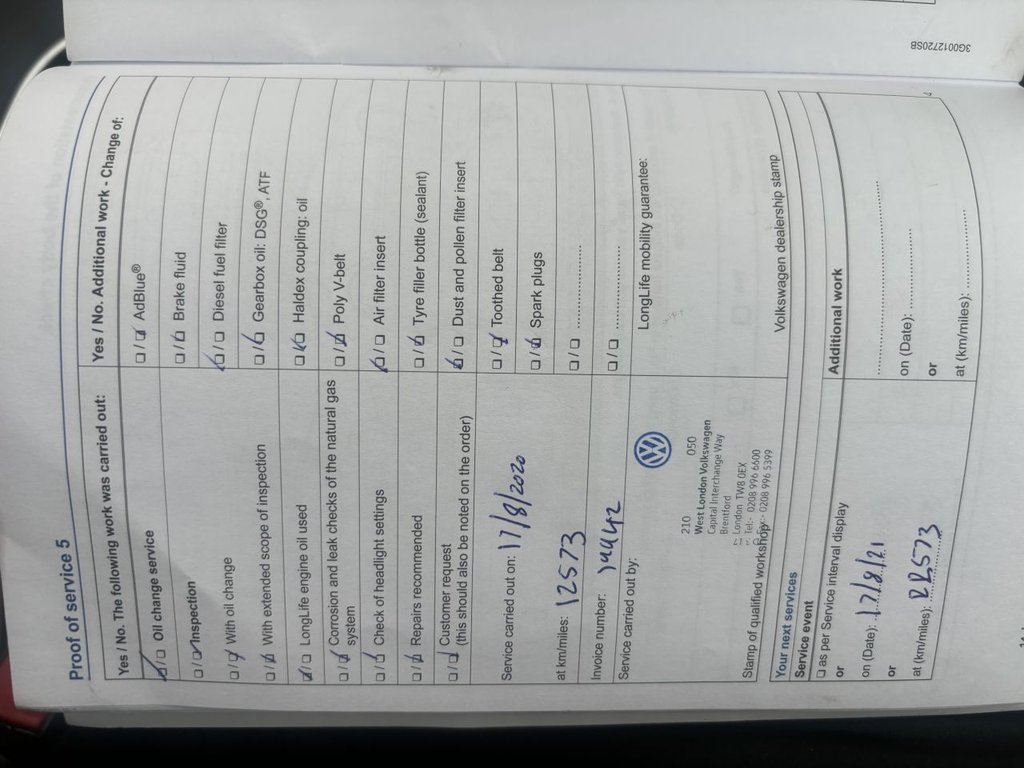 Proof of service 5
Yes / No. The following work was carried out:
☑/☐ Oil change service
☐/☑ Inspection
☐/☑ With oil change
☐/☑ With extended scope of inspection
☑/☐ LongLife engine oil used
☐/☑ Corrosion and leak checks of the natural gas
system
☐/☑ Check of headlight settings
☐/☑ Repairs recommended
☐/☑ Customer request
(this should also be noted on the order)
Service carried out on: 17/8/2020
at km/miles: 12573
Invoice number:
Service carried out by:
210 050
West London Volkswagen
Capital Interchange Way
Brentford
London TW8 0EX
Tel:- 0208 996 6600
0208 996 5399
Stamp of qualified workshop
Yes / No. Additional work - Change of:
☐/☑ AdBlue®
☐/☑ Brake fluid
☑/☐ Diesel fuel filter
☐/☑ Gearbox oil: DSG®, ATF
☐/☑ Haldex coupling: oil
☐/☑ Poly V-belt
☑/☐ Air filter insert
☐/☑ Tyre filler bottle (sealant)
☑/☐ Dust and pollen filter insert
☐/☑ Toothed belt
☐/☑ Spark plugs
☐/☐ ....................
☐/☐ ....................
LongLife mobility guarantee:
Volkswagen dealership stamp
Your next services
Service event
☐ as per Service interval display
or
on (Date): 17/8/21
or
at (km/miles): 22573
Additional work
........................................
on (Date): ....................
or
at (km/miles): ....................
4
3G0012720SB